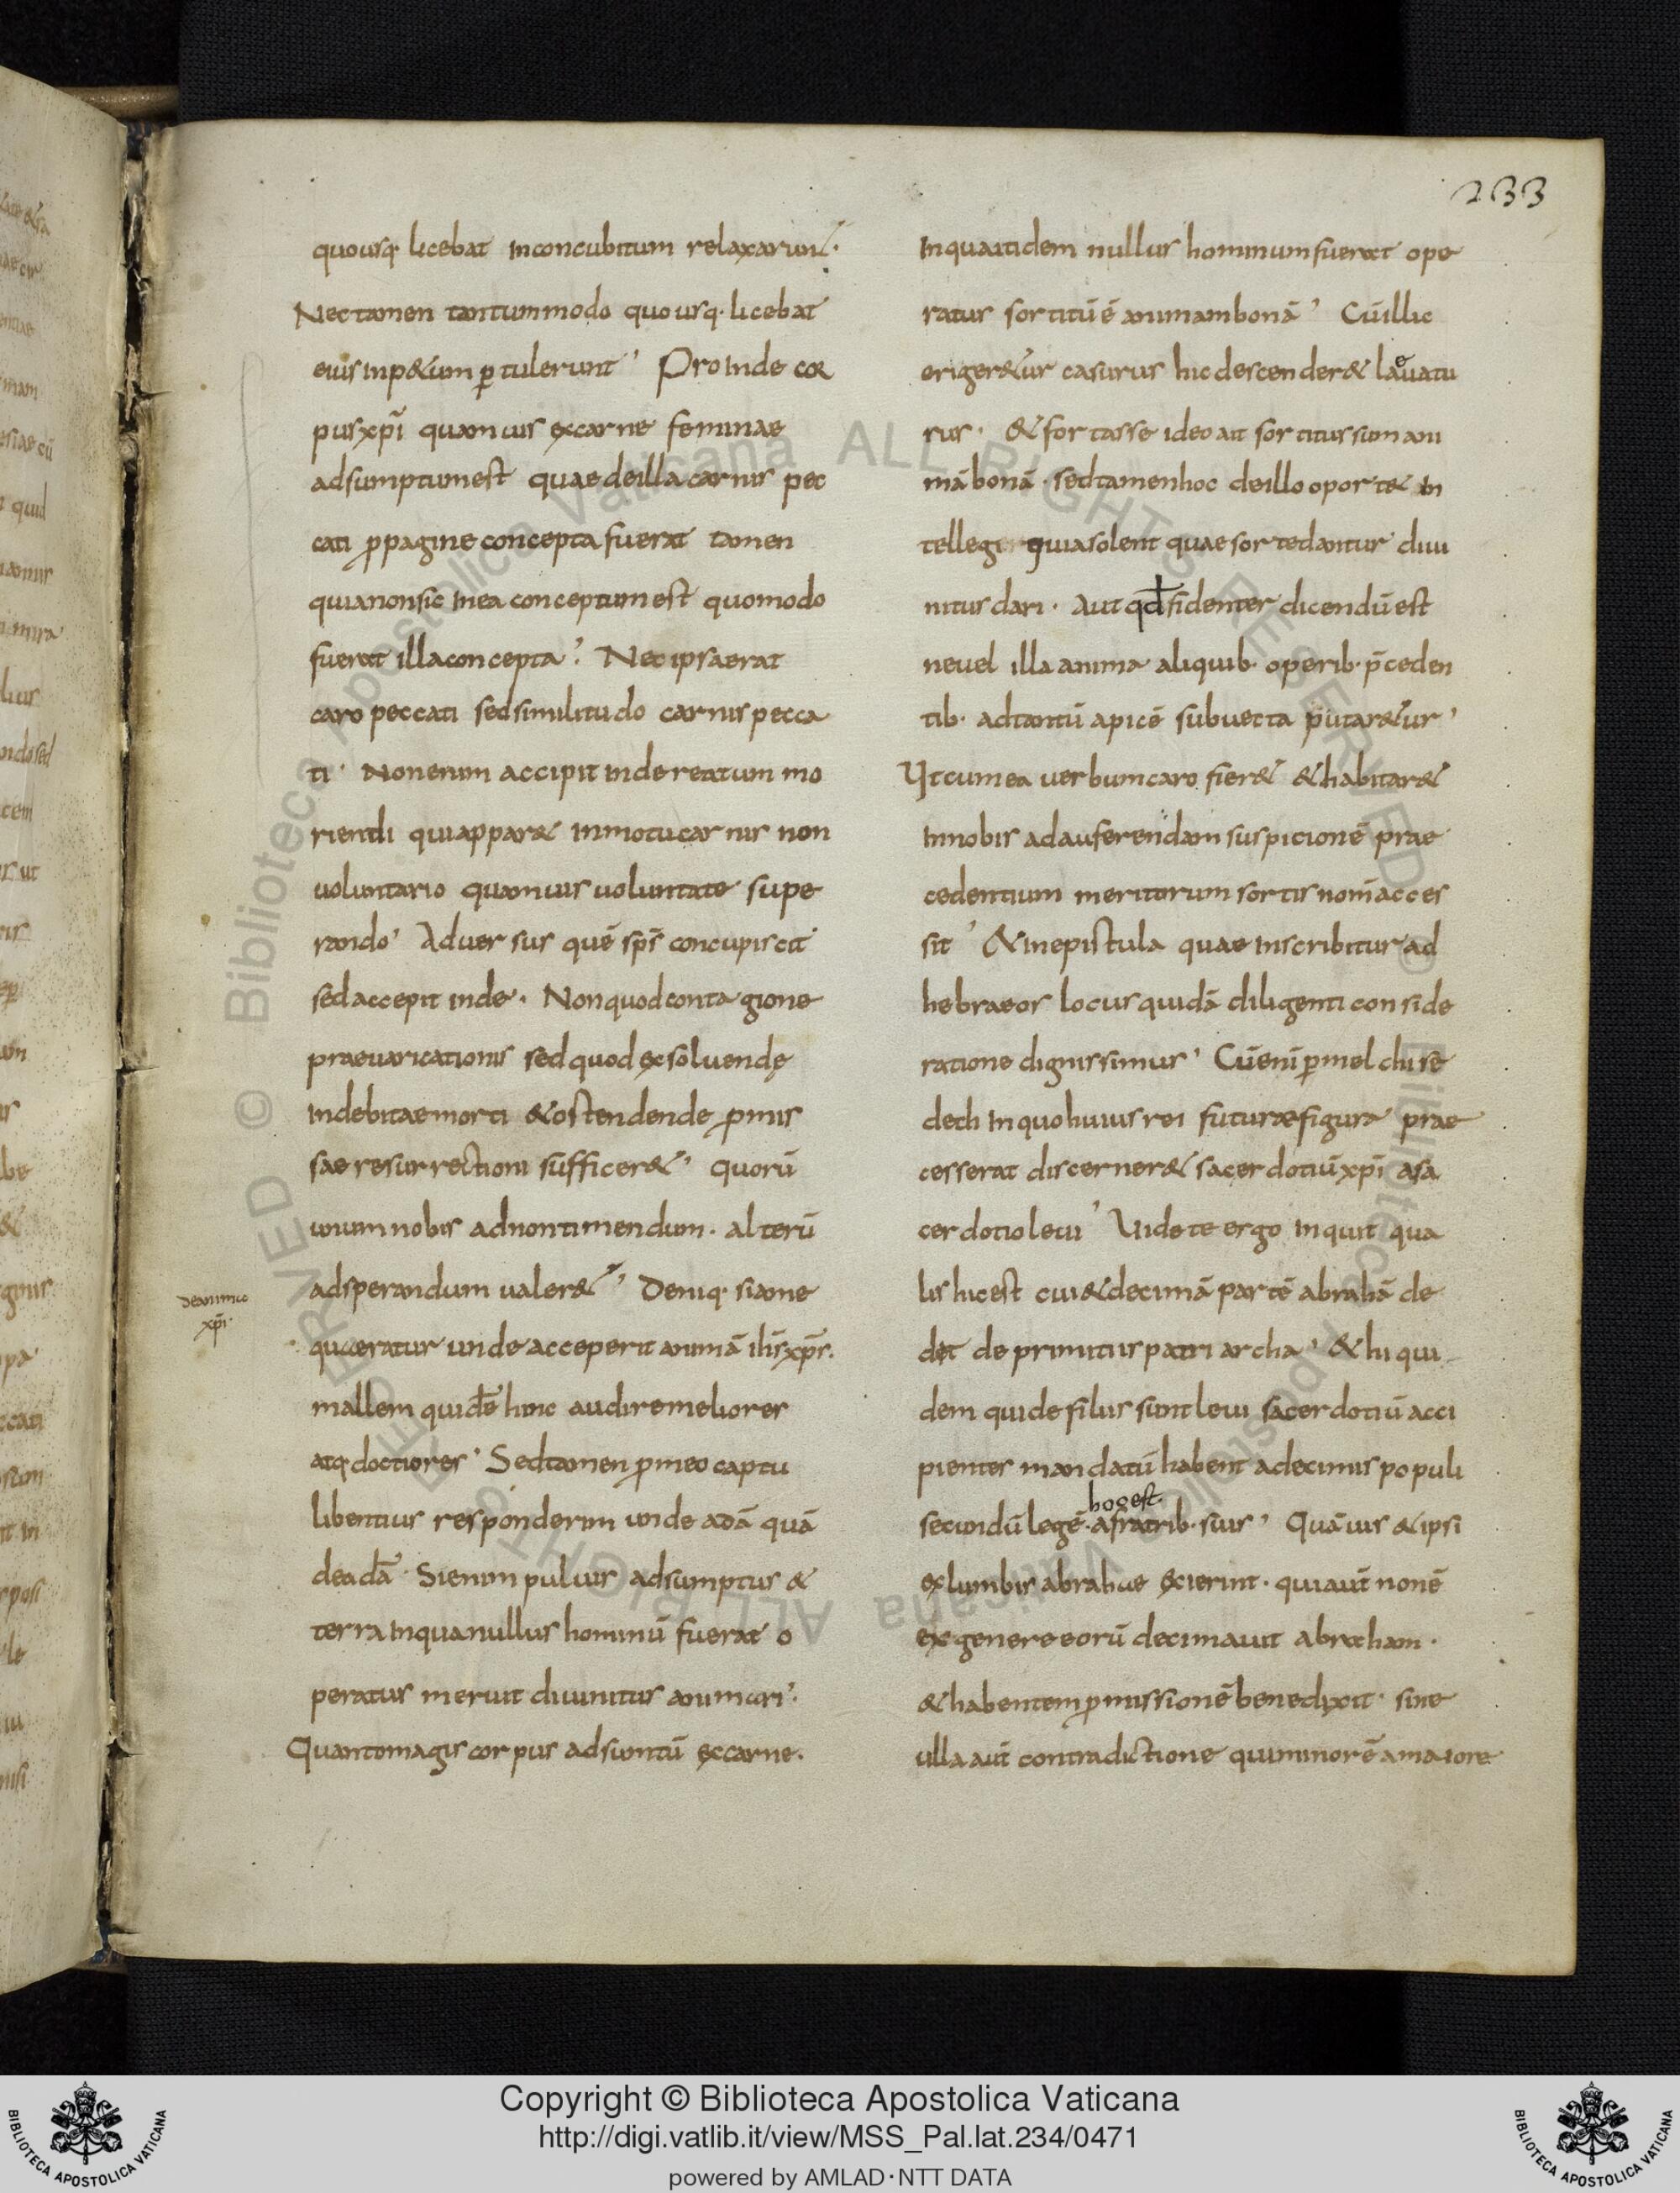 233
quousq· licebat inconcubitum relaxarunt·
Nectamen tantummodo quousq· licebat
euis inp&um ptulerunt Proinde cor
pusxpi quamuis excarne feminae
adsumptumest quaedeilla carnis pec
cati ppagine concepta fuerat tamen
quianonsic inea conceptumest quomodo
fuerat illaconcepta Necipsaerat
caro peccati sedsimilitudo carnispecca
ti· Nonenim accipit indereatum mo
riendi quiappar& inmotucarnis non
uoluntario quamuis uoluntate supe
rando Aduersus quē sps̄ concupiscit
sedaccepit inde· Nonquodcontagione
praeuaricationis sedquodexsoluende
indebitaemorti &ostendende pmis
saeresurrectioni sufficer& quorū
unumnobis adnontimendum· alterū
adsperandum ualer& Deniq· siame
deanima
xpi·
quaeratur undeacceperit animā ihs̄xps̄·
mallem quidē hinc audiremeliores
atq·doctiores Sedtamen pmeo captu
libentius responderim unde adā quā
deadā· Sienim puluis adsumptus &
terra inquanullus hominū fuerat o
peratus meruit diuinitus animari·
Quantomagis corpus adsumtū excarne·
Inquaitidem nullus hominumfuerat ope
ratus sortitūē animambonā Cūillic
eriger&ur casurus hic descender& lauatu
e
rus· &fortasse ideoait sortitussumani
mābonā· sedtamenhoc deillooport& in
tellegi quiasolent quaesortedantur diui
nitusdari· Aut qd fidenter dicendūest
neuel illa anima aliquib· operib· p̄ceden
tib· adtantū apicē subuecta putar&ur
Utcumea uerbumcaro fier& &habitar&
innobis adauferendam suspicionē prae
cedentium meritorum sortis nom̄acces
sit &inepistula quae inscribitur ad
hebraeos locus quidā diligenti conside
ratione dignissimus Cūenī pmelchise
dech inquohuius rei futuraefigura prae
cesserat discerner& sacerdotiūxpi asa
cerdotioleui Uidete ergo inquit qua
lis hicest cui&decimā partē abrahā de
dit de primitiis patriarcha &hi qui
dem quidefiliis sunt leui sacerdotiū acci
pientes mandatū habent adecimis populi
hocest·
secundū legē·afratrib·suis Quāuis &ipsi
exlumbis abrahae exierint· quiaut̄ nonē
ex genere eorū decimauit abraham·
&habentem pmissionē benedixit· sine
ulla aut̄ contradictione quiminorē amaiore
Copyright © Biblioteca Apostolica Vaticana
http://digi.vatlib.it/view/MSS_Pal.lat.234/0471
powered by AMLAD·NTT DATA
BIBLIOTECA APOSTOLICA VATICANA
BIBLIOTECA APOSTOLICA VATICANA
© Biblioteca Apostolica Vaticana ALL RIGHTS RESERVED